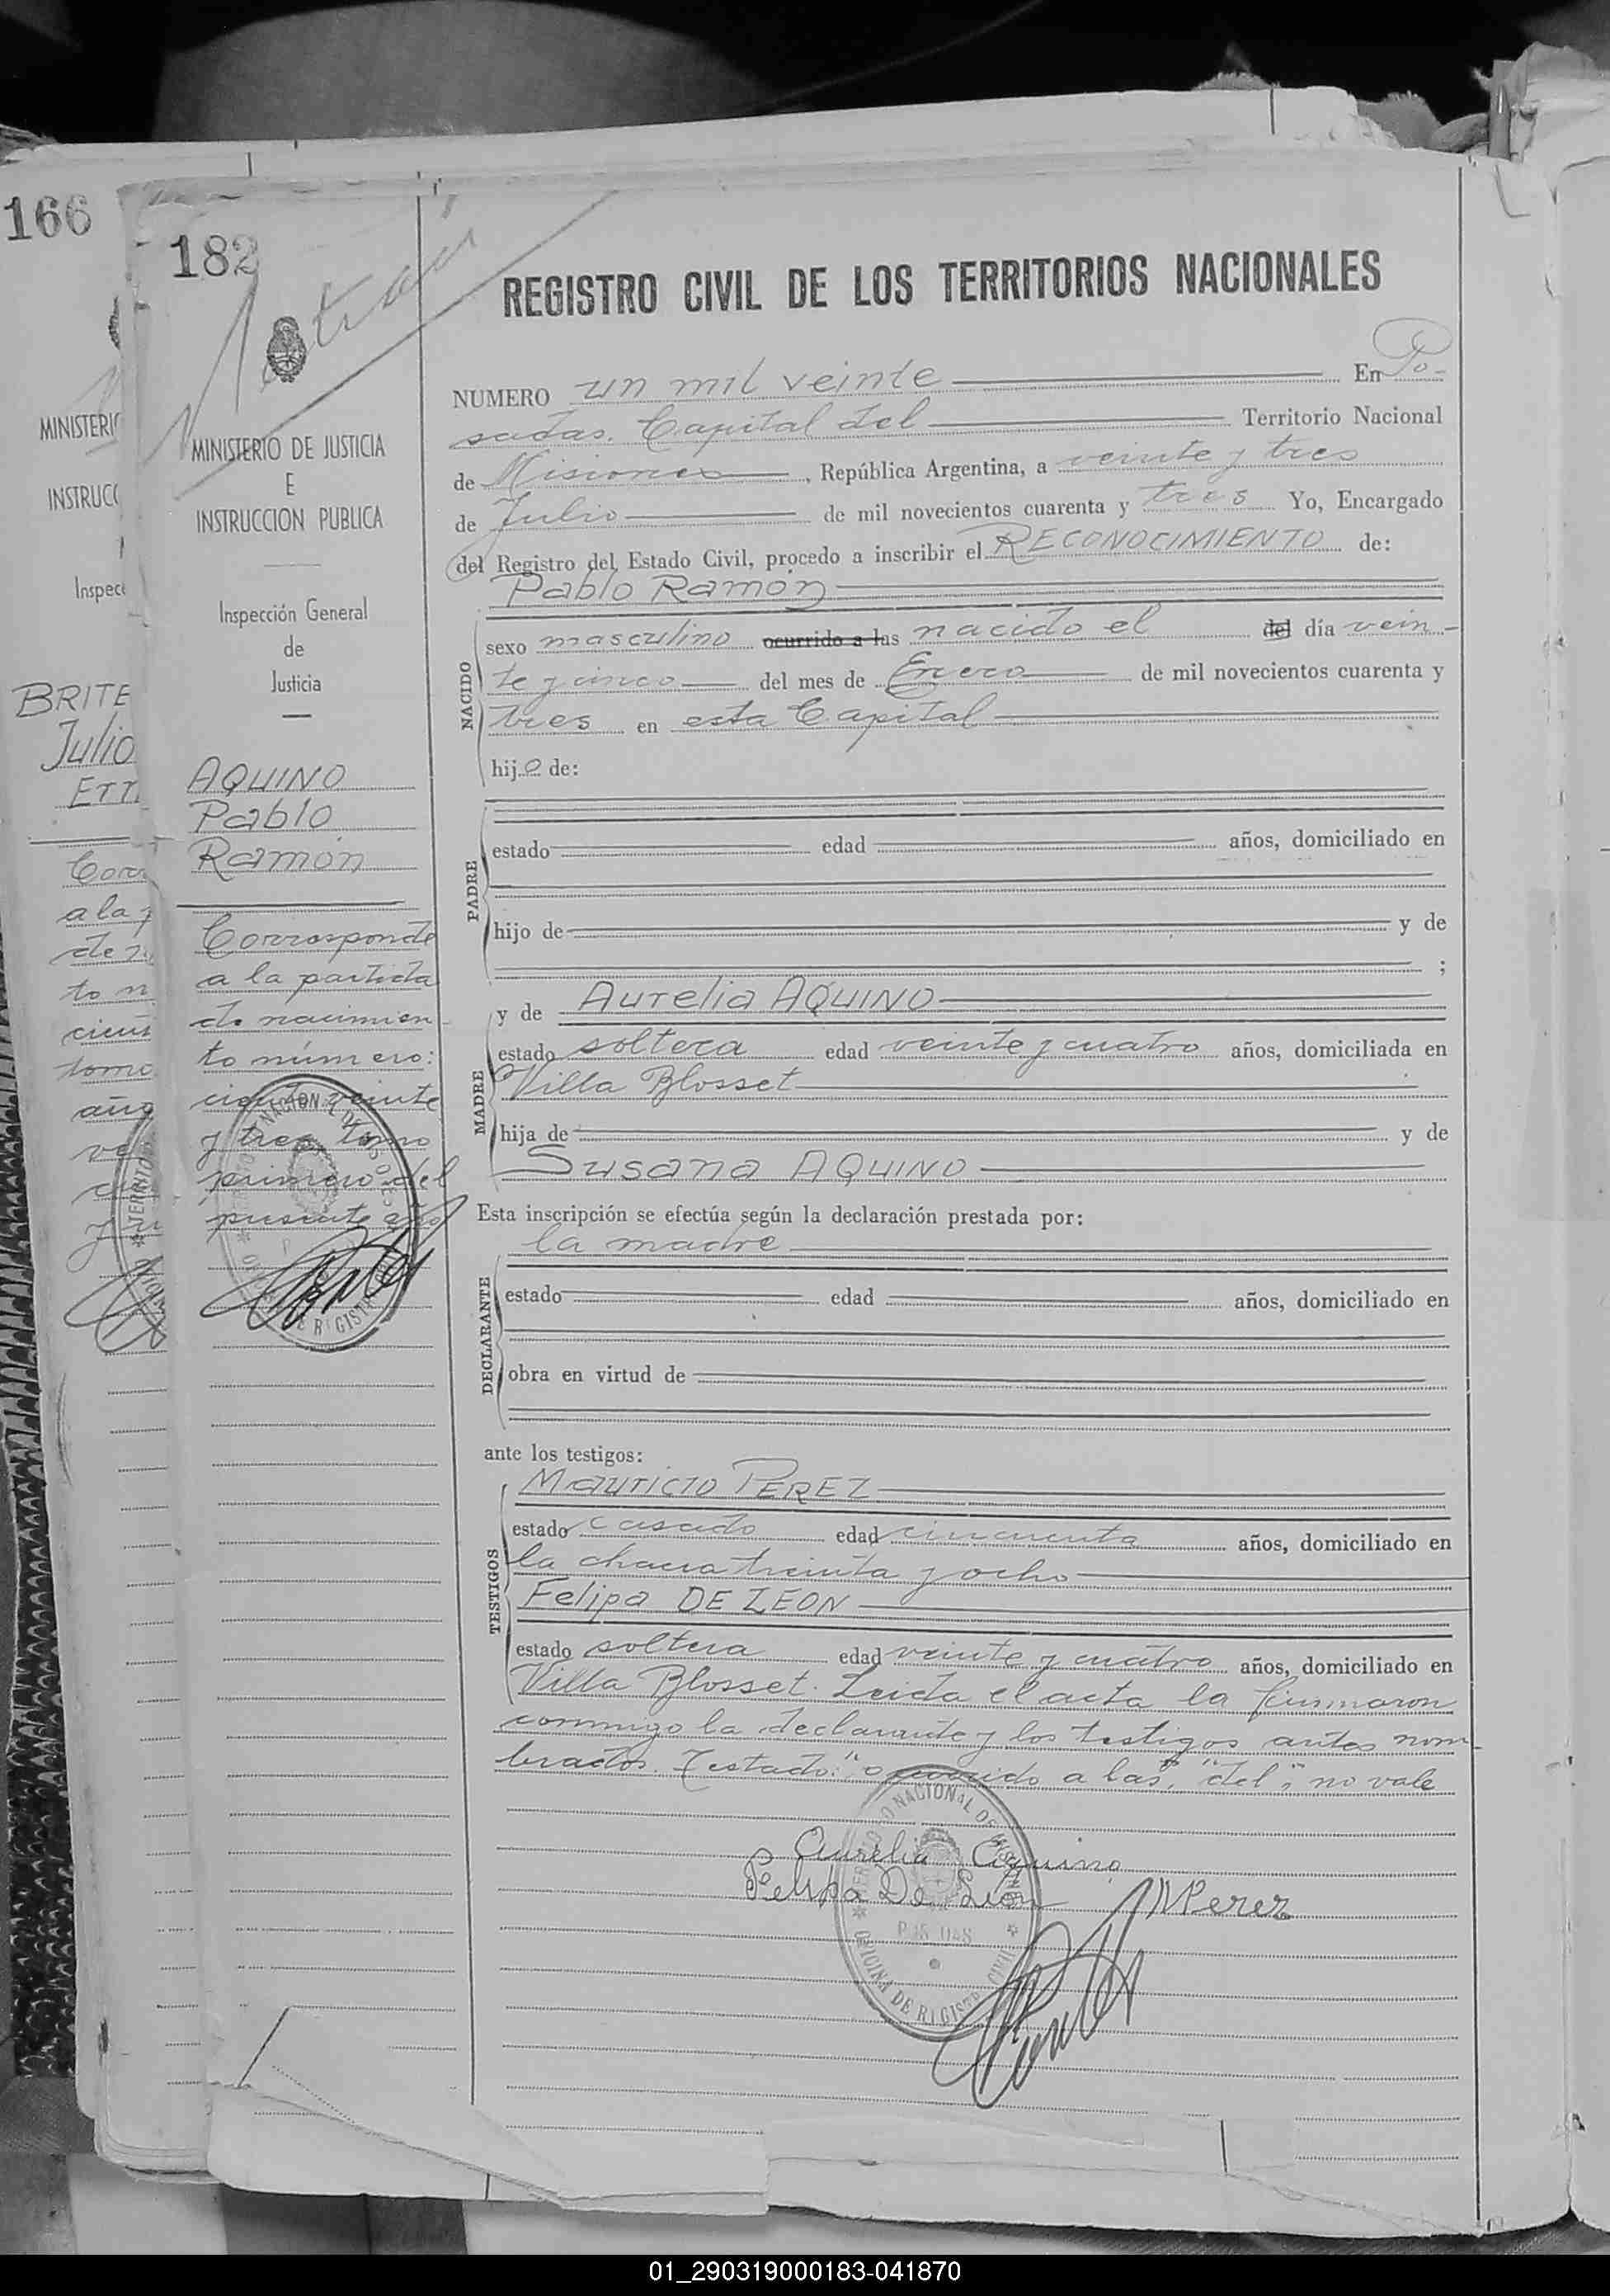 166
182
MINISTERIO DE JUSTICIA
E
INSTRUCCION PUBLICA
Inspección General
de
Justicia
AQUINO
Pablo
Ramón
Corresponde
a la partida
de nacimien
to número:
ciento veinte
y tres tomo
primero del
presente año
MINISTERI
INSTRUCC
Inspec
BRITE
Julio
Corr
a la p
to n
tomo
año
REGISTRO CIVIL DE LOS TERRITORIOS NACIONALES
NUMERO un mil veinte En Po-
sadas. Capital del Territorio Nacional
de Misiones, República Argentina, a veinte y tres
de Julio de mil novecientos cuarenta y tres Yo, Encargado
del Registro del Estado Civil, procedo a inscribir el RECONOCIMIENTO de:
Pablo Ramón
NACIDO
sexo masculino ocurrido a las nacido el del día vein-
te y cinco del mes de Enero de mil novecientos cuarenta y
tres en esta Capital
hijo de:
PADRE
estado edad años, domiciliado en
hijo de y de
;
MADRE
y de Aurelia AQUINO
estado soltera edad veinte y cuatro años, domiciliada en
Villa Blosset
hija de y de
Susana AQUINO
Esta inscripción se efectúa según la declaración prestada por:
la madre
DECLARANTE
estado edad años, domiciliado en
obra en virtud de
ante los testigos:
TESTIGOS
Mauricio PEREZ
estado casado edad cincuenta años, domiciliado en
la chacra treinta y ocho
Felipa DE LEON
estado soltera edad veinte y cuatro años, domiciliado en
Villa Blosset. Leida el acta la firmaron
conmigo la declarante y los testigos antes nom-
brados. Testado: "ocurrido a las", "del"; no vale
Aurelia Aquino
Felipa De León
MPerez
OFICINA DE REGISTRO CIVIL
01_290319000183-041870